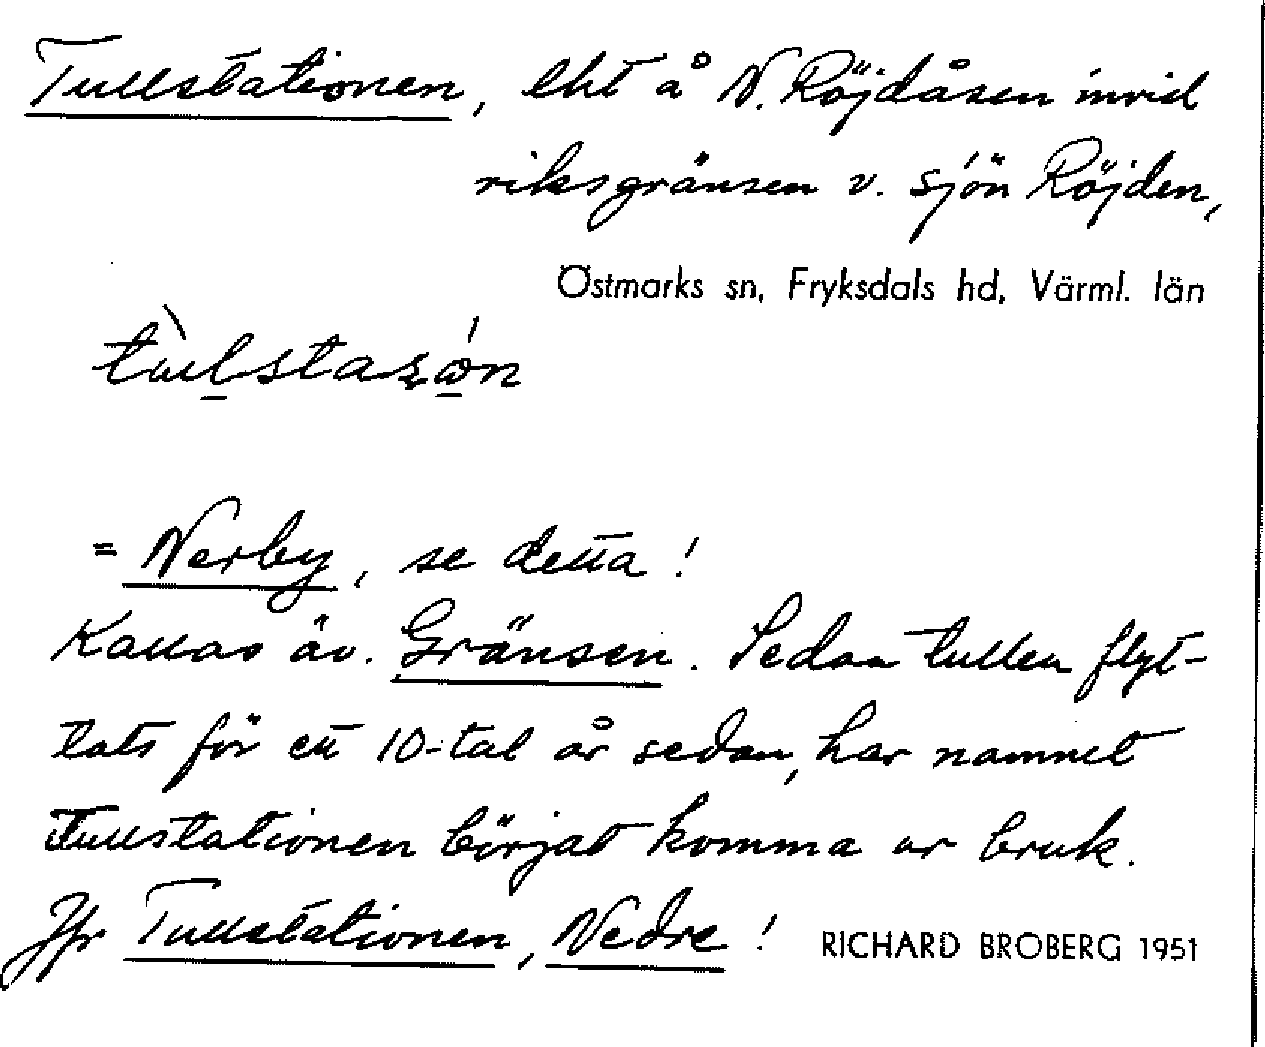 Tullstationen, lht å N. Röjdåsen invid
riksgränsen v. sjön Röjden,
Östmarks sn, Fryksdals hd, Värml. län
= Nerby, se detta!
Kallas äv. Gränsen. Sedan tullen flyt-
tats för ett 10-tal år sedan, har namnet
Tullstationen börjat komma ur bruk.
Jfr Tullstationen, Nedre! RICHARD BROBERG 1951